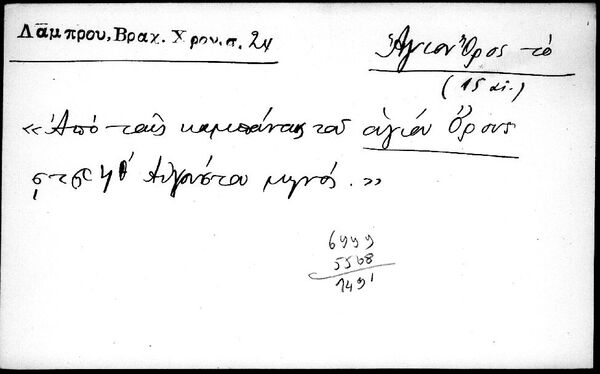 Λάμπρου, Βραχ. Χρον. σ. 24
Ἅγιον Ὄρος τὸ
(15 αἰ.)
«Ἀπὸ ταῖς καμπάναις τοῦ ἁγίου Ὄρους
Αὐγούστου μηνός.»
6999
5508
1491